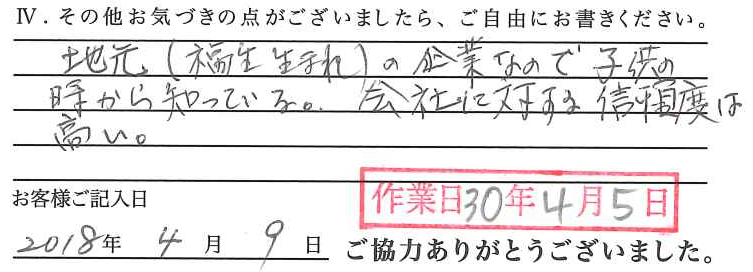 Ⅳ．その他お気づきの点がございましたら、ご自由にお書きください。
地元（福生生まれ）の企業なので子供の
時から知っている。会社に対する信頼度は
高い。
お客様ご記入日
作業日30年4月5日
2018年 4月 9日 ご協力ありがとうございました。